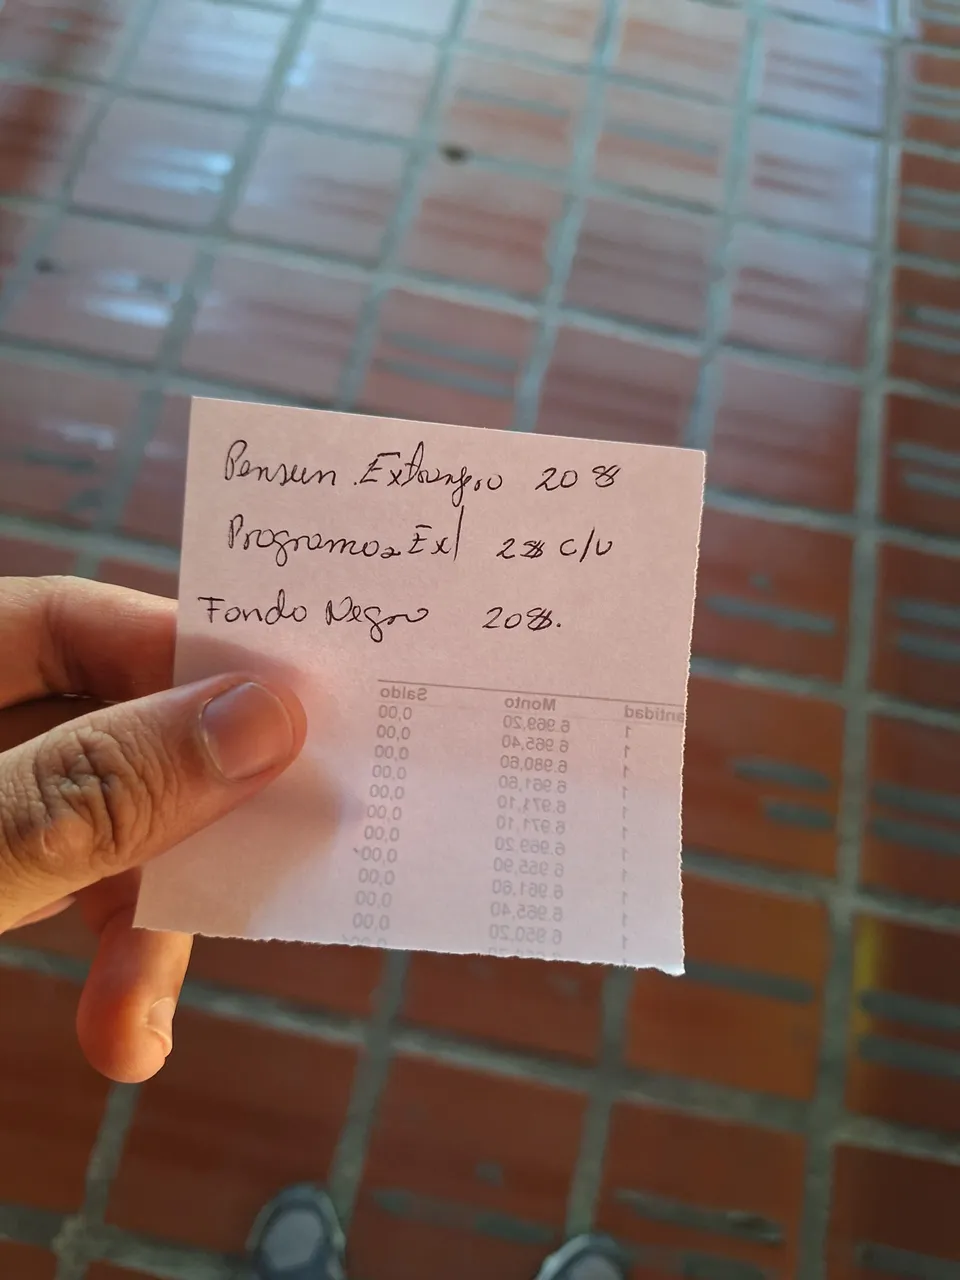 Pensun Extranjero 20$
Programas Ext 2$ c/u
Fondo Negro 20$.
Saldo Monto antidad
0,00 6.969,20 1
0,00 6.965,40 1
0,00 6.980,60 1
0,00 6.961,60 1
0,00 6.971,10 1
0,00 6.971,10 1
0,00 6.969,20 1
0,00 6.955,90 1
0,00 6.961,60 1
0,00 6.965,40 1
0,00 6.950,20 1